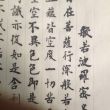 般若波羅蜜
在菩薩行深般若
蘊皆空度一切苦
空不異色色即是
識亦復如是舍利